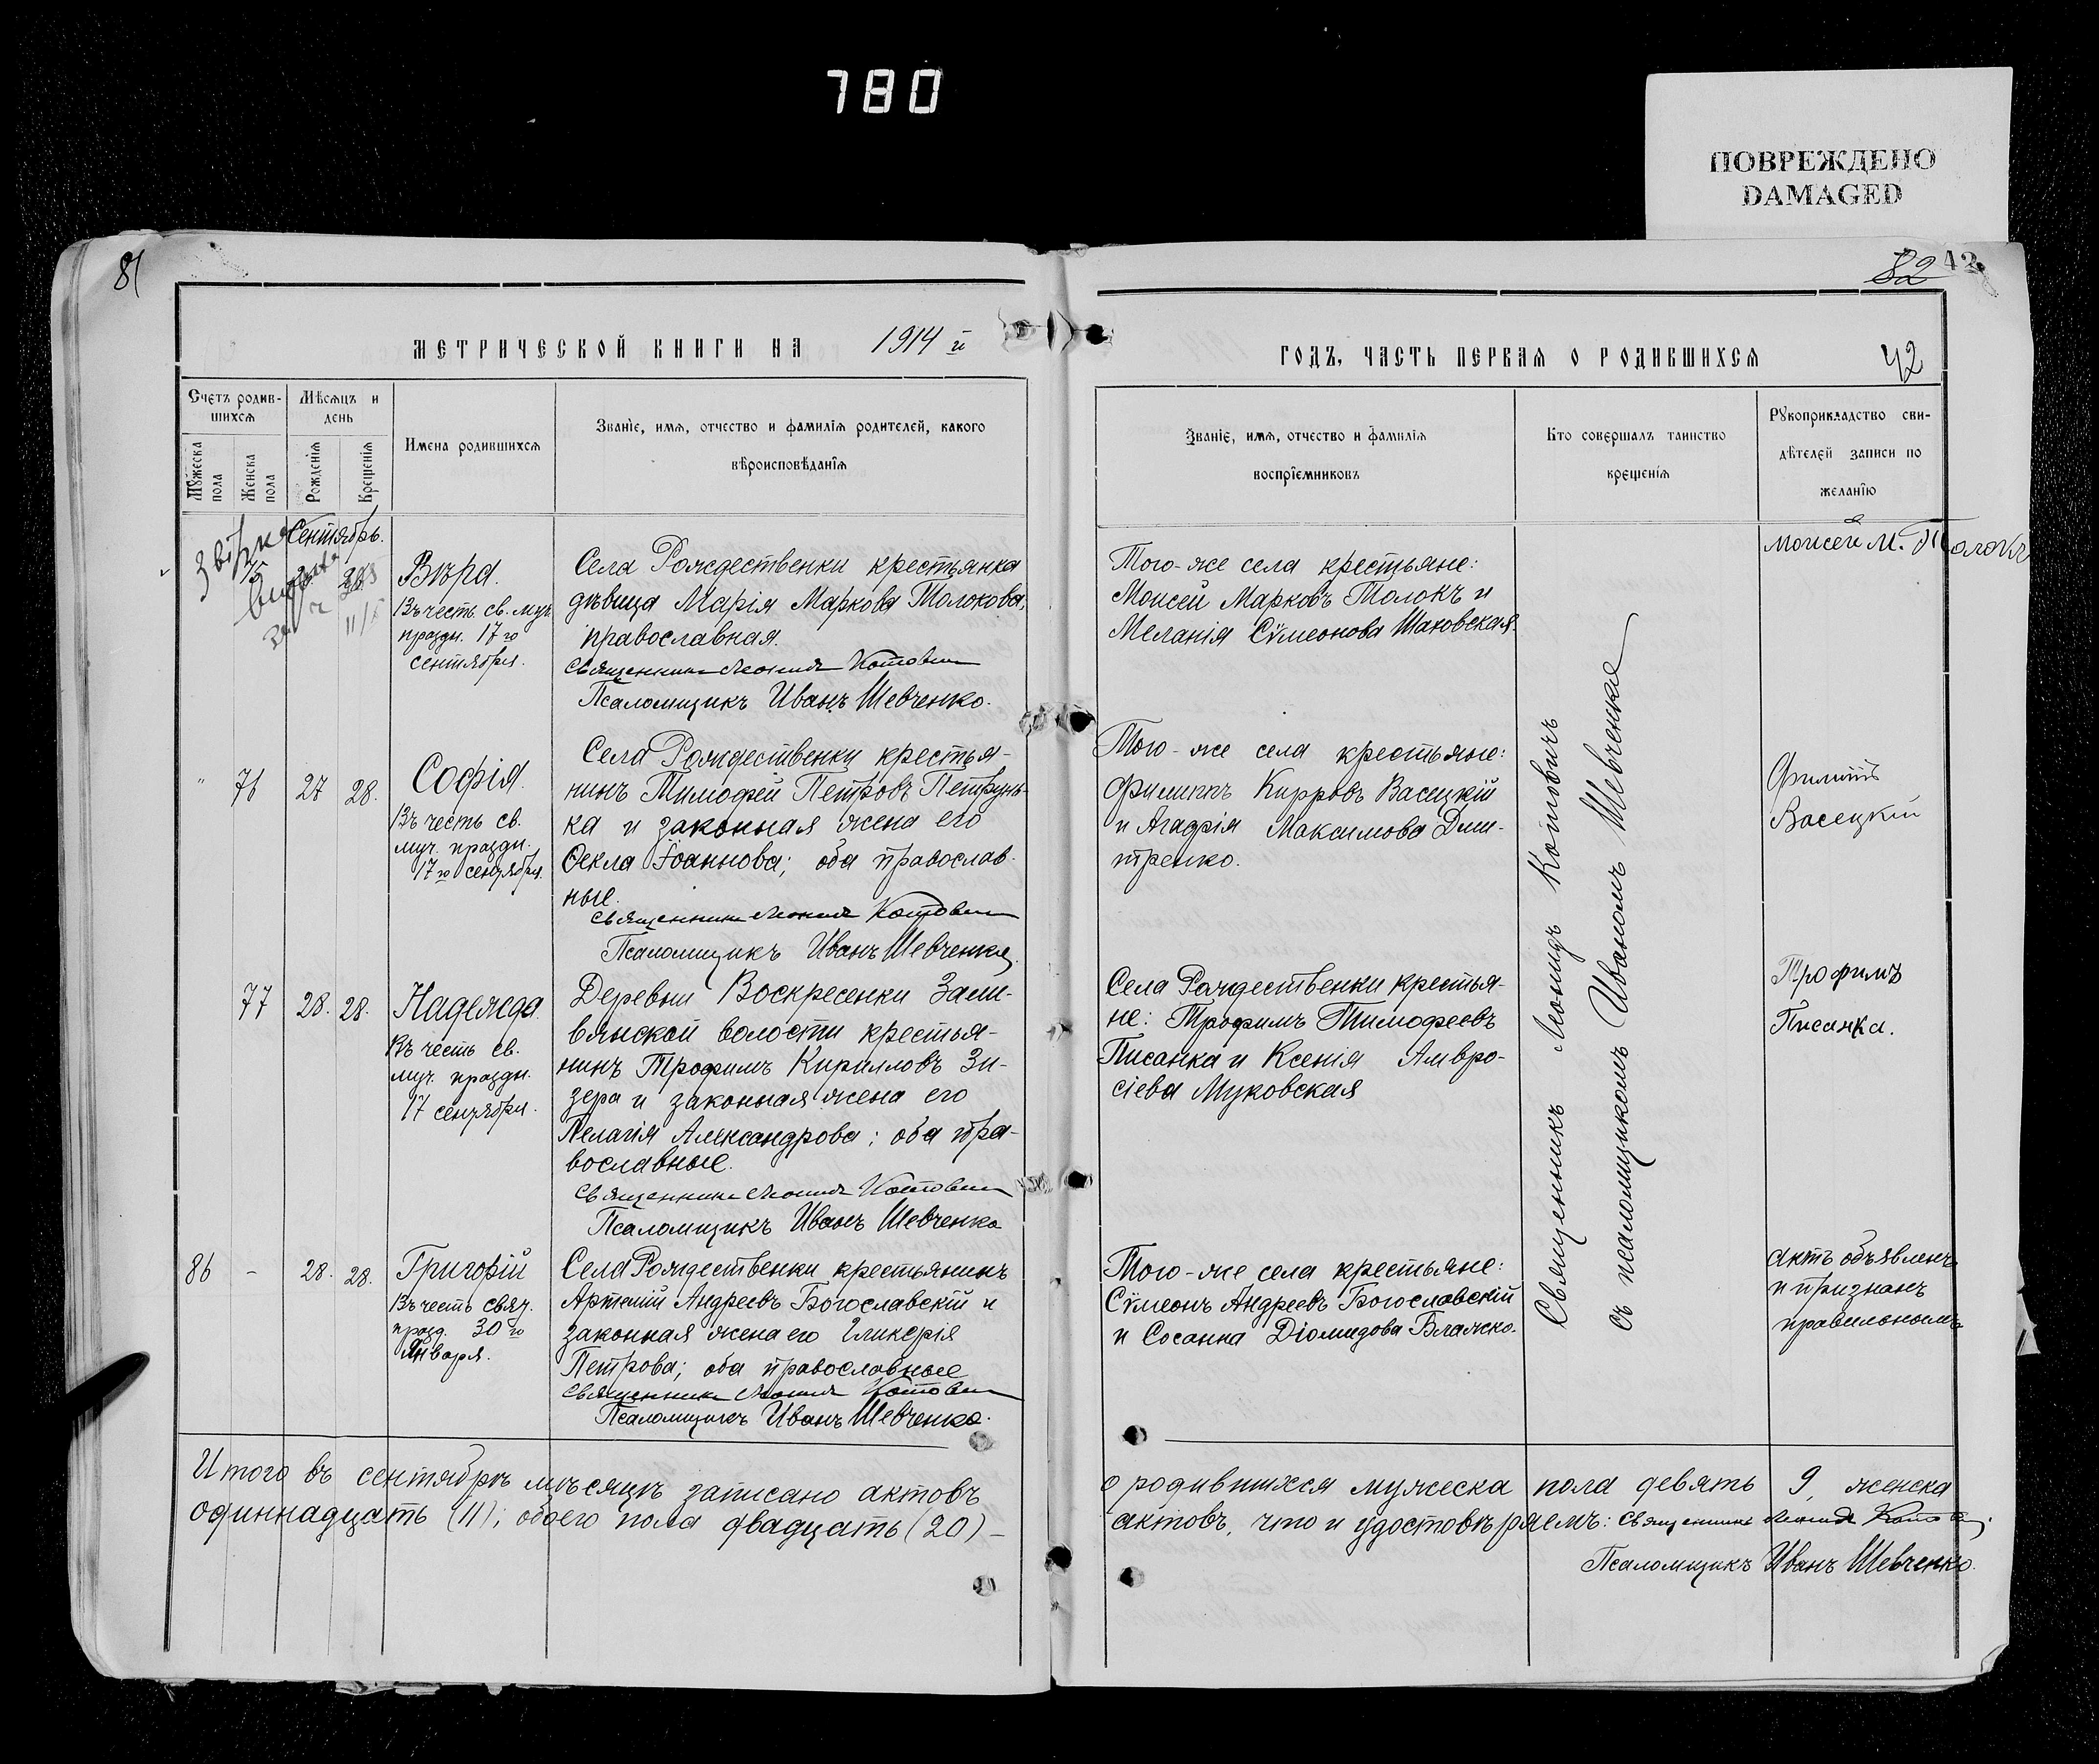 780
ПОВРЕЖДЕНО
DAMAGED
81
МЕТРИЧЕСКОЙ КНИГИ НА 1914 й
Счетъ родив-
шихся
Мѣсяцъ и
день
Мужеска
пола
Женска
пола
Рожденія
Крещенія
Имена родившихся
Званіе, имя, отчество и фамилія родителей, какого
вѣроисповѣданія
Сентябрь.
75
Вѣра.
Въ честь св. муч.
праздн. 17 го
сентября.
Села Рождественки крестьянка
дѣвица Марія Маркова Толокова,
православная.
Священникъ Леонидъ Котовичъ
Псаломщикъ Иванъ Шевченко.
" 76 27 28.
Софія.
Въ честь св.
муч. праздн.
17 го сентября.
Села Рождественки крестья-
нинъ Тимофей Петровъ Петрунь-
ка и законная жена его
Ѳекла Іоаннова; оба православ-
ные.
Священникъ Леонидъ Котовичъ
Псаломщикъ Иванъ Шевченко.
77 28. 28.
Надежда.
Въ честь св.
муч. праздн.
17 сентября.
Деревни Воскресенки
волости крестья-
нинъ Трофимъ Кирилловъ Зи-
зера и законная жена его
Пелагія Александрова; оба пра-
вославные.
Священникъ Леонидъ Котовичъ
Псаломщикъ Иванъ Шевченко
86 - 28. 28.
Григорій
Въ честь свят.
празд. 30 го
января.
Села Рождественки крестьянинъ
Артемій Андреевъ Богославскій и
законная жена его Гликерія
Петрова; оба православные
Священникъ Леонидъ Котовичъ
Псаломщикъ Иванъ Шевченко.
Итого въ сентябрѣ мѣсяцѣ записано актовъ
одиннадцать (11); обоего пола двадцать (20) –
82
42
ГОДЪ, ЧАСТЬ ПЕРВАЯ О РОДИВШИХСЯ
42
Званіе, имя, отчество и фамилія
воспріемниковъ
Кто совершалъ таинство
крещенія
Рукоприкладство сви-
дѣтелей записи по
желанію
Того-же села крестьяне:
Моисей Марковъ Толокъ и
Меланія Сѵмеонова Шаховская.
Моисей М. Толокъ
Того-же села крестьяне:
Филиппъ Кирровъ Васецкій
и Агафія Максимова Дми-
тренко.
Филиппъ
Васецкій
Села Рождественки крестья-
не: Трофимъ Тимофеевъ
Писанка и Ксенія Амвро-
сіева Муковская
Трофимъ
Писанка.
Того-же села крестьяне:
Сѵмеонъ Андреевъ Богославскій
и Сосанна Діомидова Бланско.
Актъ объявленъ
и признанъ
правильнымъ
Священникъ Леонидъ Котовичъ
съ псаломщикомъ Иваномъ Шевченко
о родившихся мужеска пола девять 9, женска
актовъ, что и удостовѣряемъ: Священникъ Леонидъ Котовичъ.
Псаломщикъ Иванъ Шевченко.